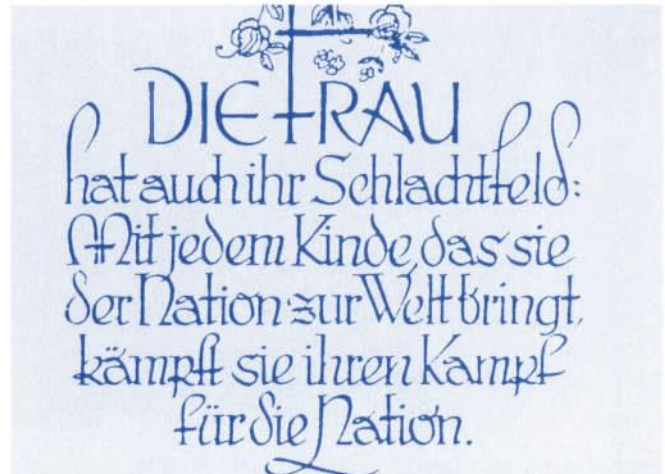 DIE FRAU
hat auch ihr Schlachtfeld:
Mit jedem Kinde, das sie
der Nation zur Welt bringt,
kämpft sie ihren Kampf
für die Nation.